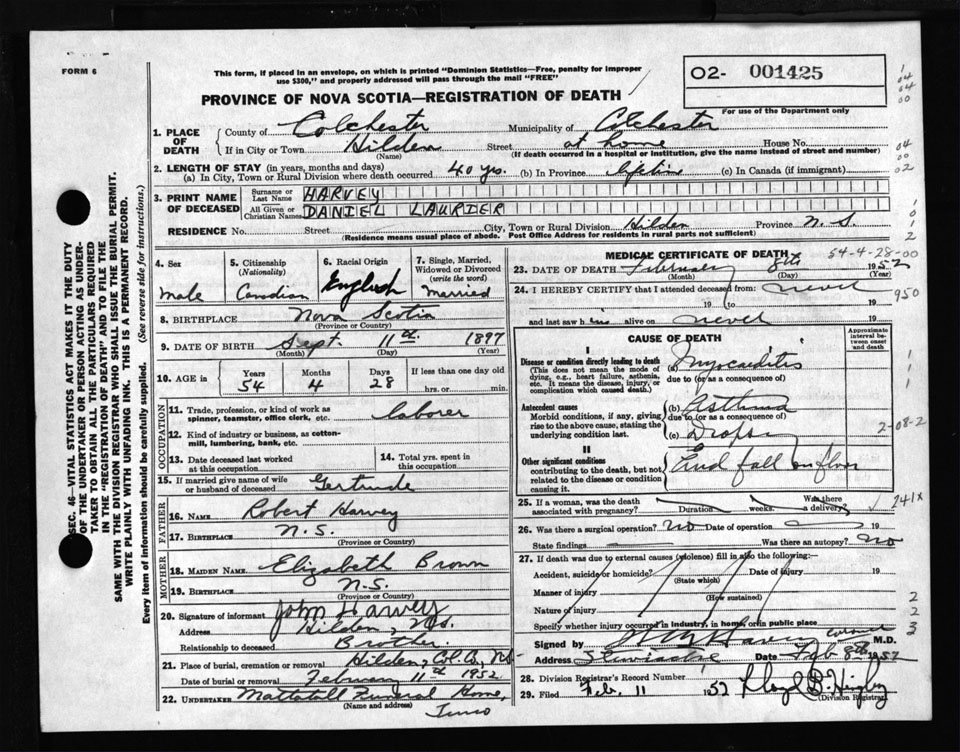 FORM 6
This form, if placed in an envelope, on which is printed "Dominion Statistics—Free, penalty for improper
use $300," and properly addressed will pass through the mail "FREE"
O2- 001425
For use of the Department only
PROVINCE OF NOVA SCOTIA—REGISTRATION OF DEATH
1. PLACE OF DEATH
County of Colchester Municipality of Colchester
If in City or Town Hilden Street at home House No.
(Name) (If death occurred in a hospital or institution, give the name instead of street and number)
2. LENGTH OF STAY (in years, months and days)
(a) In City, Town or Rural Division where death occurred 40 yrs. (b) In Province lifetime (c) In Canada (if immigrant)
3. PRINT NAME OF DECEASED
Surname or Last Name HARVEY
All Given or Christian Names DANIEL LAURIER
RESIDENCE No. Street City, Town or Rural Division Hilden Province N.S.
(Residence means usual place of abode. Post Office Address for residents in rural parts not sufficient)
SEC. 46—VITAL STATISTICS ACT MAKES IT THE DUTY
OF THE UNDERTAKER OR PERSON ACTING AS UNDER-
TAKER TO OBTAIN ALL THE PARTICULARS REQUIRED
IN THE "REGISTRATION OF DEATH" AND TO FILE THE
SAME WITH THE DIVISION REGISTRAR WHO SHALL ISSUE THE BURIAL PERMIT.
WRITE PLAINLY WITH UNFADING INK. THIS IS A PERMANENT RECORD.
Every item of information should be carefully supplied. (See reverse side for instructions.)
4. Sex Male
5. Citizenship (Nationality) Canadian
6. Racial Origin English
7. Single, Married, Widowed or Divorced (write the word) Married
8. BIRTHPLACE Nova Scotia
(Province or Country)
9. DATE OF BIRTH Sept. 11th 1897
(Month) (Day) (Year)
10. AGE in Years 54 Months 4 Days 28 If less than one day old hrs. or min.
OCCUPATION
11. Trade, profession, or kind of work as spinner, teamster, office clerk, etc. laborer
12. Kind of industry or business, as cotton-mill, lumbering, bank, etc.
13. Date deceased last worked at this occupation
14. Total yrs. spent in this occupation
15. If married give name of wife or husband of deceased Gertrude
FATHER
16. NAME Robert Harvey
17. BIRTHPLACE N.S.
(Province or Country)
MOTHER
18. MAIDEN NAME Elizabeth Brown
19. BIRTHPLACE N.S.
(Province or Country)
20. Signature of informant John Harvey
Address Hilden, N.S.
Relationship to deceased Brother
21. Place of burial, cremation or removal Hilden, Col. Co., N.S.
Date of burial or removal February 11th 1952
22. UNDERTAKER Mattatall Funeral Home,
(Name and address)
Truro
MEDICAL CERTIFICATE OF DEATH 54-4-28-00
23. DATE OF DEATH February 8th 1952
(Month) (Day) (Year)
24. I HEREBY CERTIFY that I attended deceased from: never
19 to 19
and last saw him alive on never 19
950
CAUSE OF DEATH
Approximate interval between onset and death
I
Disease or condition directly leading to death
(This does not mean the mode of dying, e.g., heart failure, asthenia, etc. It means the disease, injury, or complication which caused death.)
(a) Myocarditis
due to (or as a consequence of)
Antecedent causes
Morbid conditions, if any, giving rise to the above cause, stating the underlying condition last.
(b) Asthma
due to (or as a consequence of)
(c) Dropsy
2-08-2
II
Other significant conditions
contributing to the death, but not related to the disease or condition causing it.
End fall on floor
25. If a woman, was the death associated with pregnancy? Duration weeks. Was there a delivery?
241x
26. Was there a surgical operation? No Date of operation 19
State findings Was there an autopsy? No
27. If death was due to external causes (violence) fill in also the following:—
Accident, suicide or homicide? Date of injury 19
(State which)
Manner of injury
(How sustained)
Nature of injury
Specify whether injury occurred in industry, in home, or in public place
Signed by coroner M.D.
Address Stewiacke Date Feb 8th 1952
28. Division Registrar's Record Number
29. Filed Feb. 11 1952 Lloyd B. Higby
(Division Registrar)